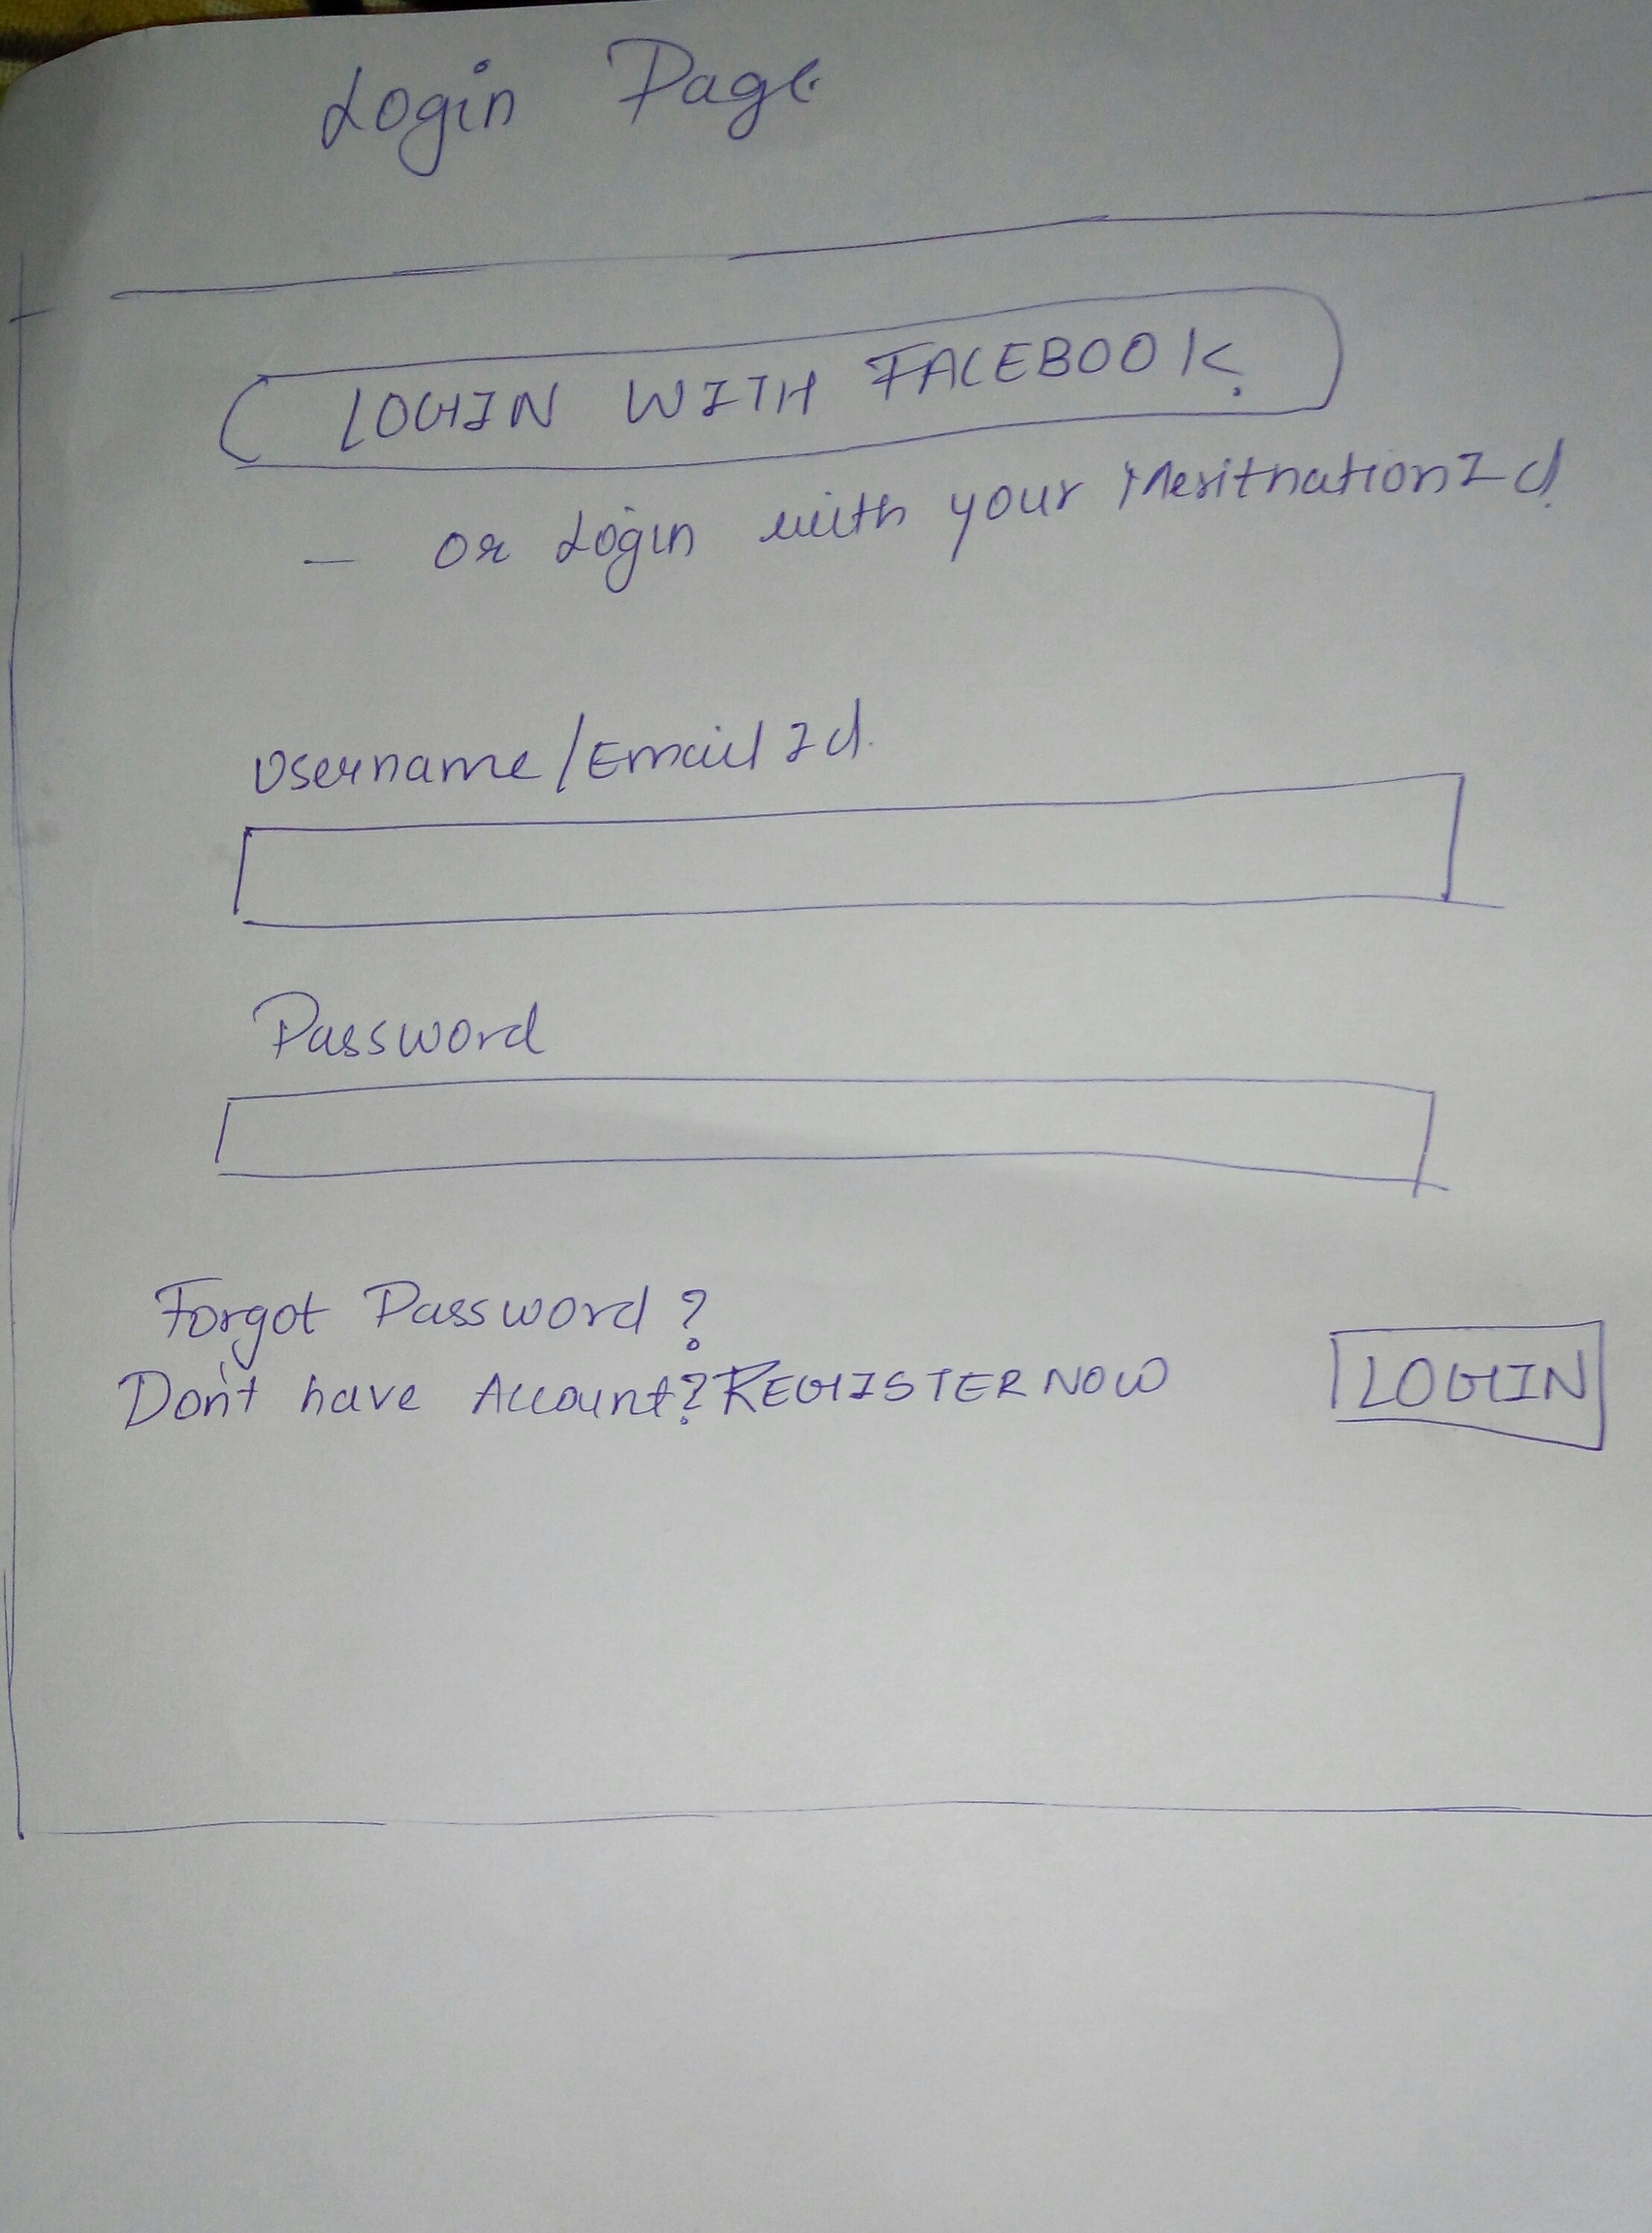 Login Page
LOGIN WITH FACEBOOK.
- or Login with your MeritnationId.
Username/Email Id.
Password
Forgot Password?
Don't have Account? REGISTER NOW
LOGIN